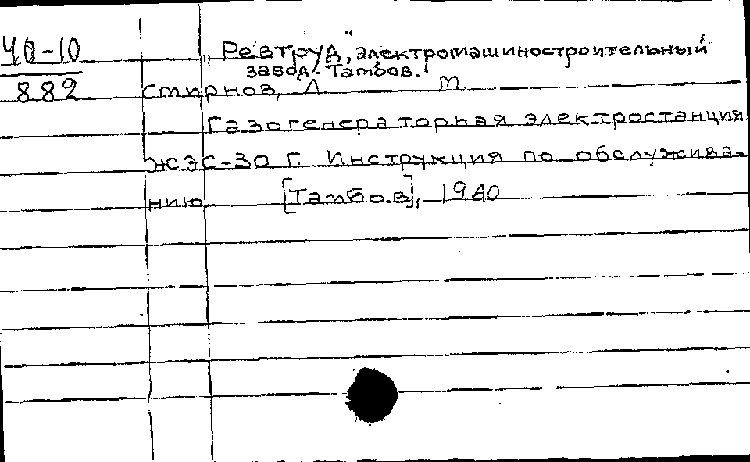 40-10
882
„Ревтруд", электромашиностроительный
завод. Тамбов.
Смирнов, Л М
Газогенераторная электростанция
ЖЭС-30 Г. Инструкция по обслужива-
нию [Тамбов], 1940